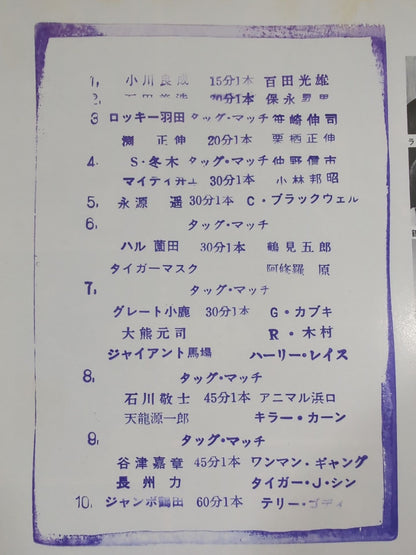 1, 小川良成 15分1本 百田光雄
2, 1本 保永昇男
3 ロッキー羽田 タッグ・マッチ 笹崎伸司
渕 正伸 20分1本 栗栖正伸
4, S・冬木 タッグ・マッチ 仲野信市
マイティ井上 30分1本 小林邦昭
5, 永源 遥 30分1本 C・ブラックウェル
6, タッグ・マッチ
ハル薗田 30分1本 鶴見五郎
タイガーマスク 阿修羅 原
7, タッグ・マッチ
グレート小鹿 30分1本 G・カブキ
大熊元司 R・木村
ジャイアント馬場 ハーリー・レイス
8, タッグ・マッチ
石川敬士 45分1本 アニマル浜口
天龍源一郎 キラー・カーン
9, タッグ・マッチ
谷津嘉章 45分1本 ワンマン・ギャング
長州 力 タイガー・J・シン
10, ジャンボ鶴田 60分1本 テリー・ゴディ
ラ